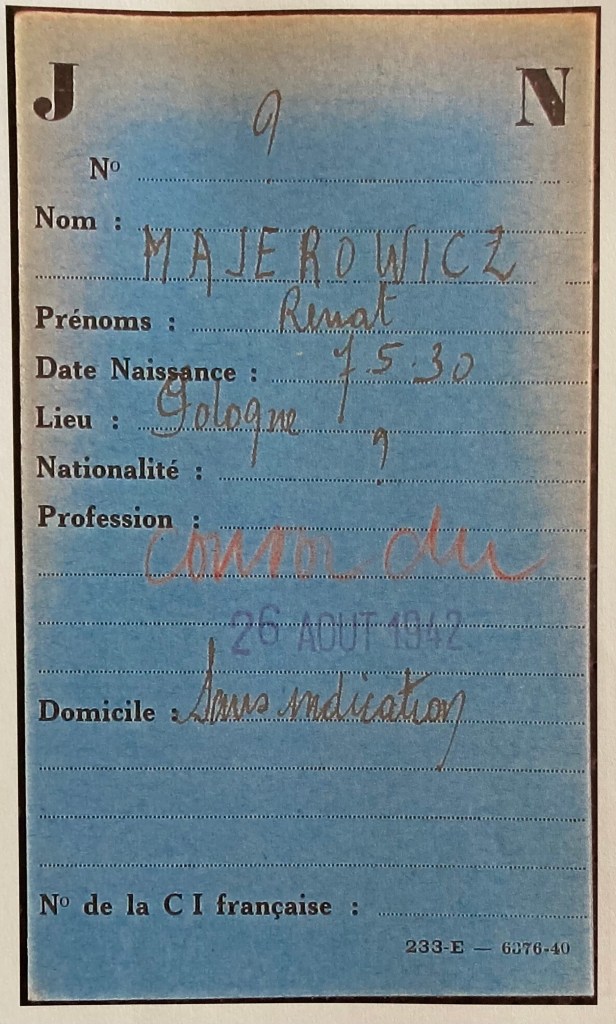 J N
Nº 9
Nom :
MAJEROWICZ
Prénoms : Renat
Date Naissance : 7.5.30
Lieu : Cologne
Nationalité : ?
Profession :
convoi du
26 AOUT 1942
Domicile : Sans indication
Nº de la C I française :
233-E — 6376-40